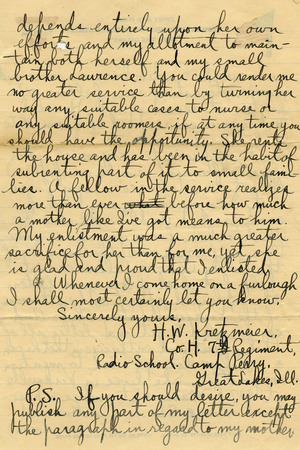 depends entirely upon her own
effort and my allotment to main-
tain both herself and my small
brother Lawrence. You could render me
no greater service than by turning her
way any suitable cases to nurse or
any suitable roomers if at any time you
should have the opportunity. She rents
the house and has been in the habit of
subrenting part of it to small fami-
lies. A fellow in the service realizes
more than ever what before how much
a mother like I've got means to him.
My enlistment was a much greater
sacrifice for her than for me, yet she
is glad and proud that I enlisted.
Whenever I come home on a furlough
I shall most certainly let you know.
Sincerely yours,
H.W. Kretzmeier,
Co. H. 7th Regiment,
Radio School. Camp Perry,
Great Lakes, Ill.
P.S. If you should desire, you may
publish any part of my letter except
the paragraph in regard to my mother